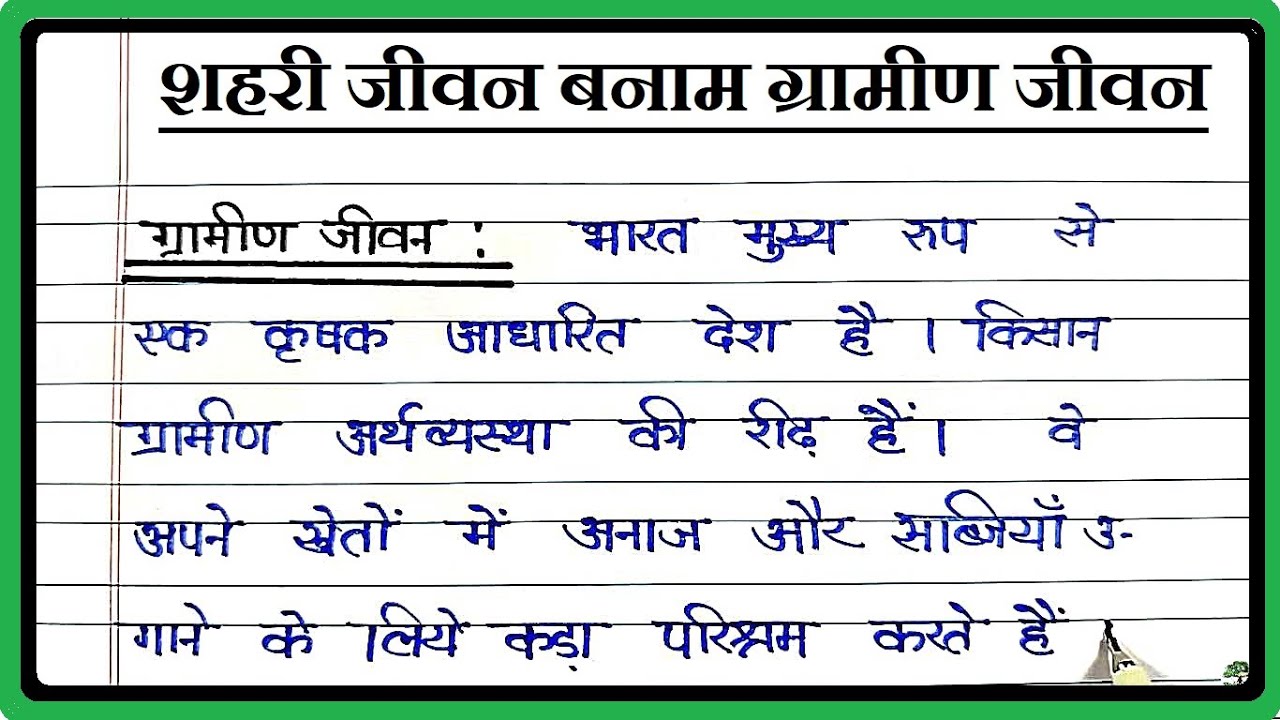 शहरी जीवन बनाम ग्रामीण जीवन
ग्रामीण जीवन : भारत मुख्य रुप से
एक कृषक आधारित देश है । किसान
ग्रामीण अर्थव्यस्था की रीढ़ हैं । वे
अपने खेतों में अनाज और सब्जियाँ उ-
गाने के लिये कड़ा परिश्रम करते हैं